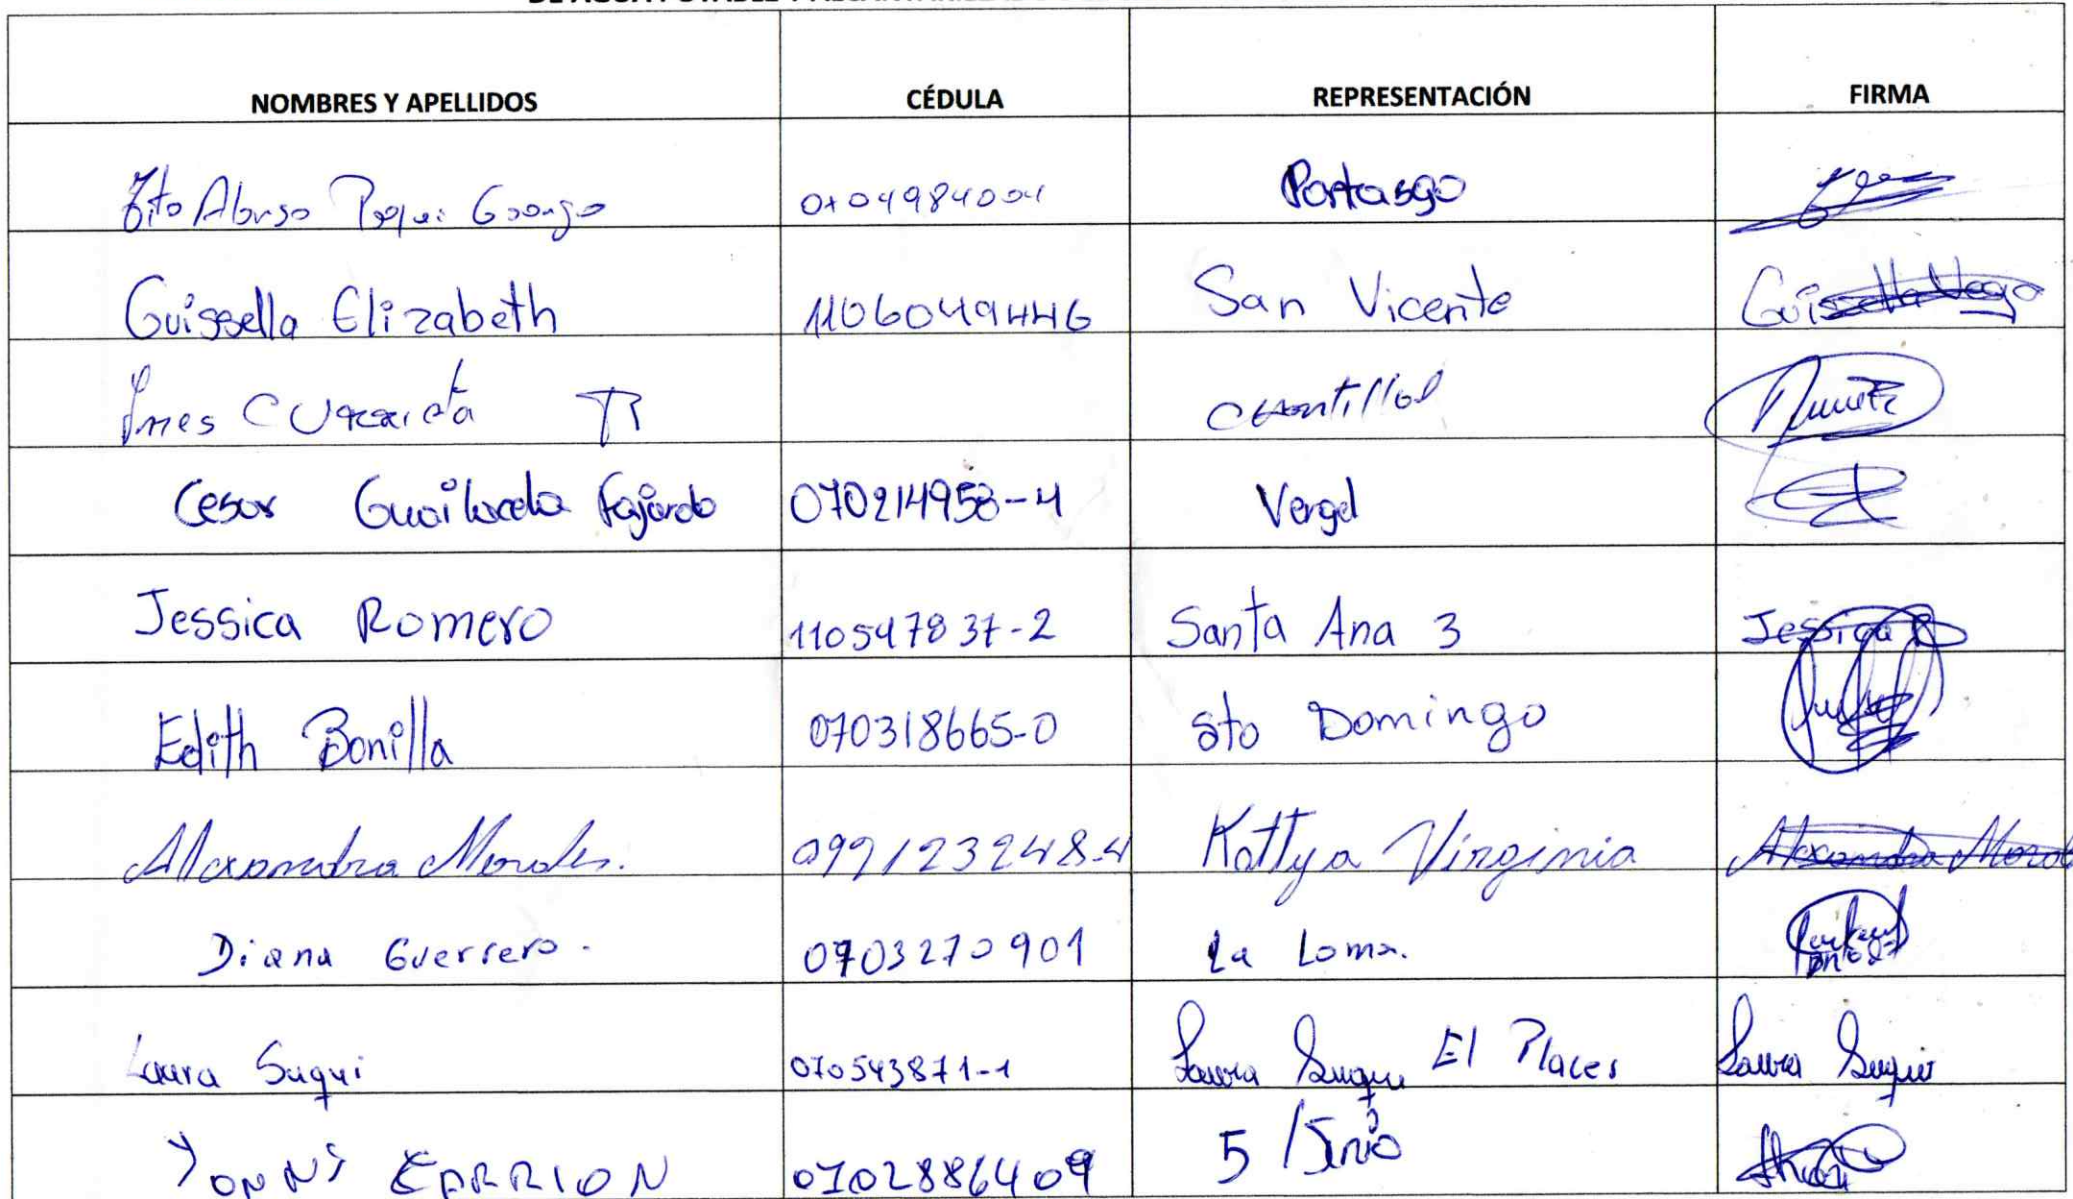 NOMBRES Y APELLIDOS CÉDULA REPRESENTACIÓN FIRMA
Tito Portasgo
Guissella Elizabeth 1106049446 San Vicente Guissella Vega
Ines
Cesar Guailacela Fajardo 070214958-4 Vergel
Jessica Romero 110547837-2 Santa Ana 3 Jessica R
Edith Bonilla 070318665-0 Sto Domingo
Alexandra Morales. 099123248-4 Kattya Virginia Alexandra Morales
Diana Guerrero. 0703270901 La Loma.
Laura Suqui 070543871-1 Laura Suqui El Placer Laura Suqui
Yonny CARRION 0702886409